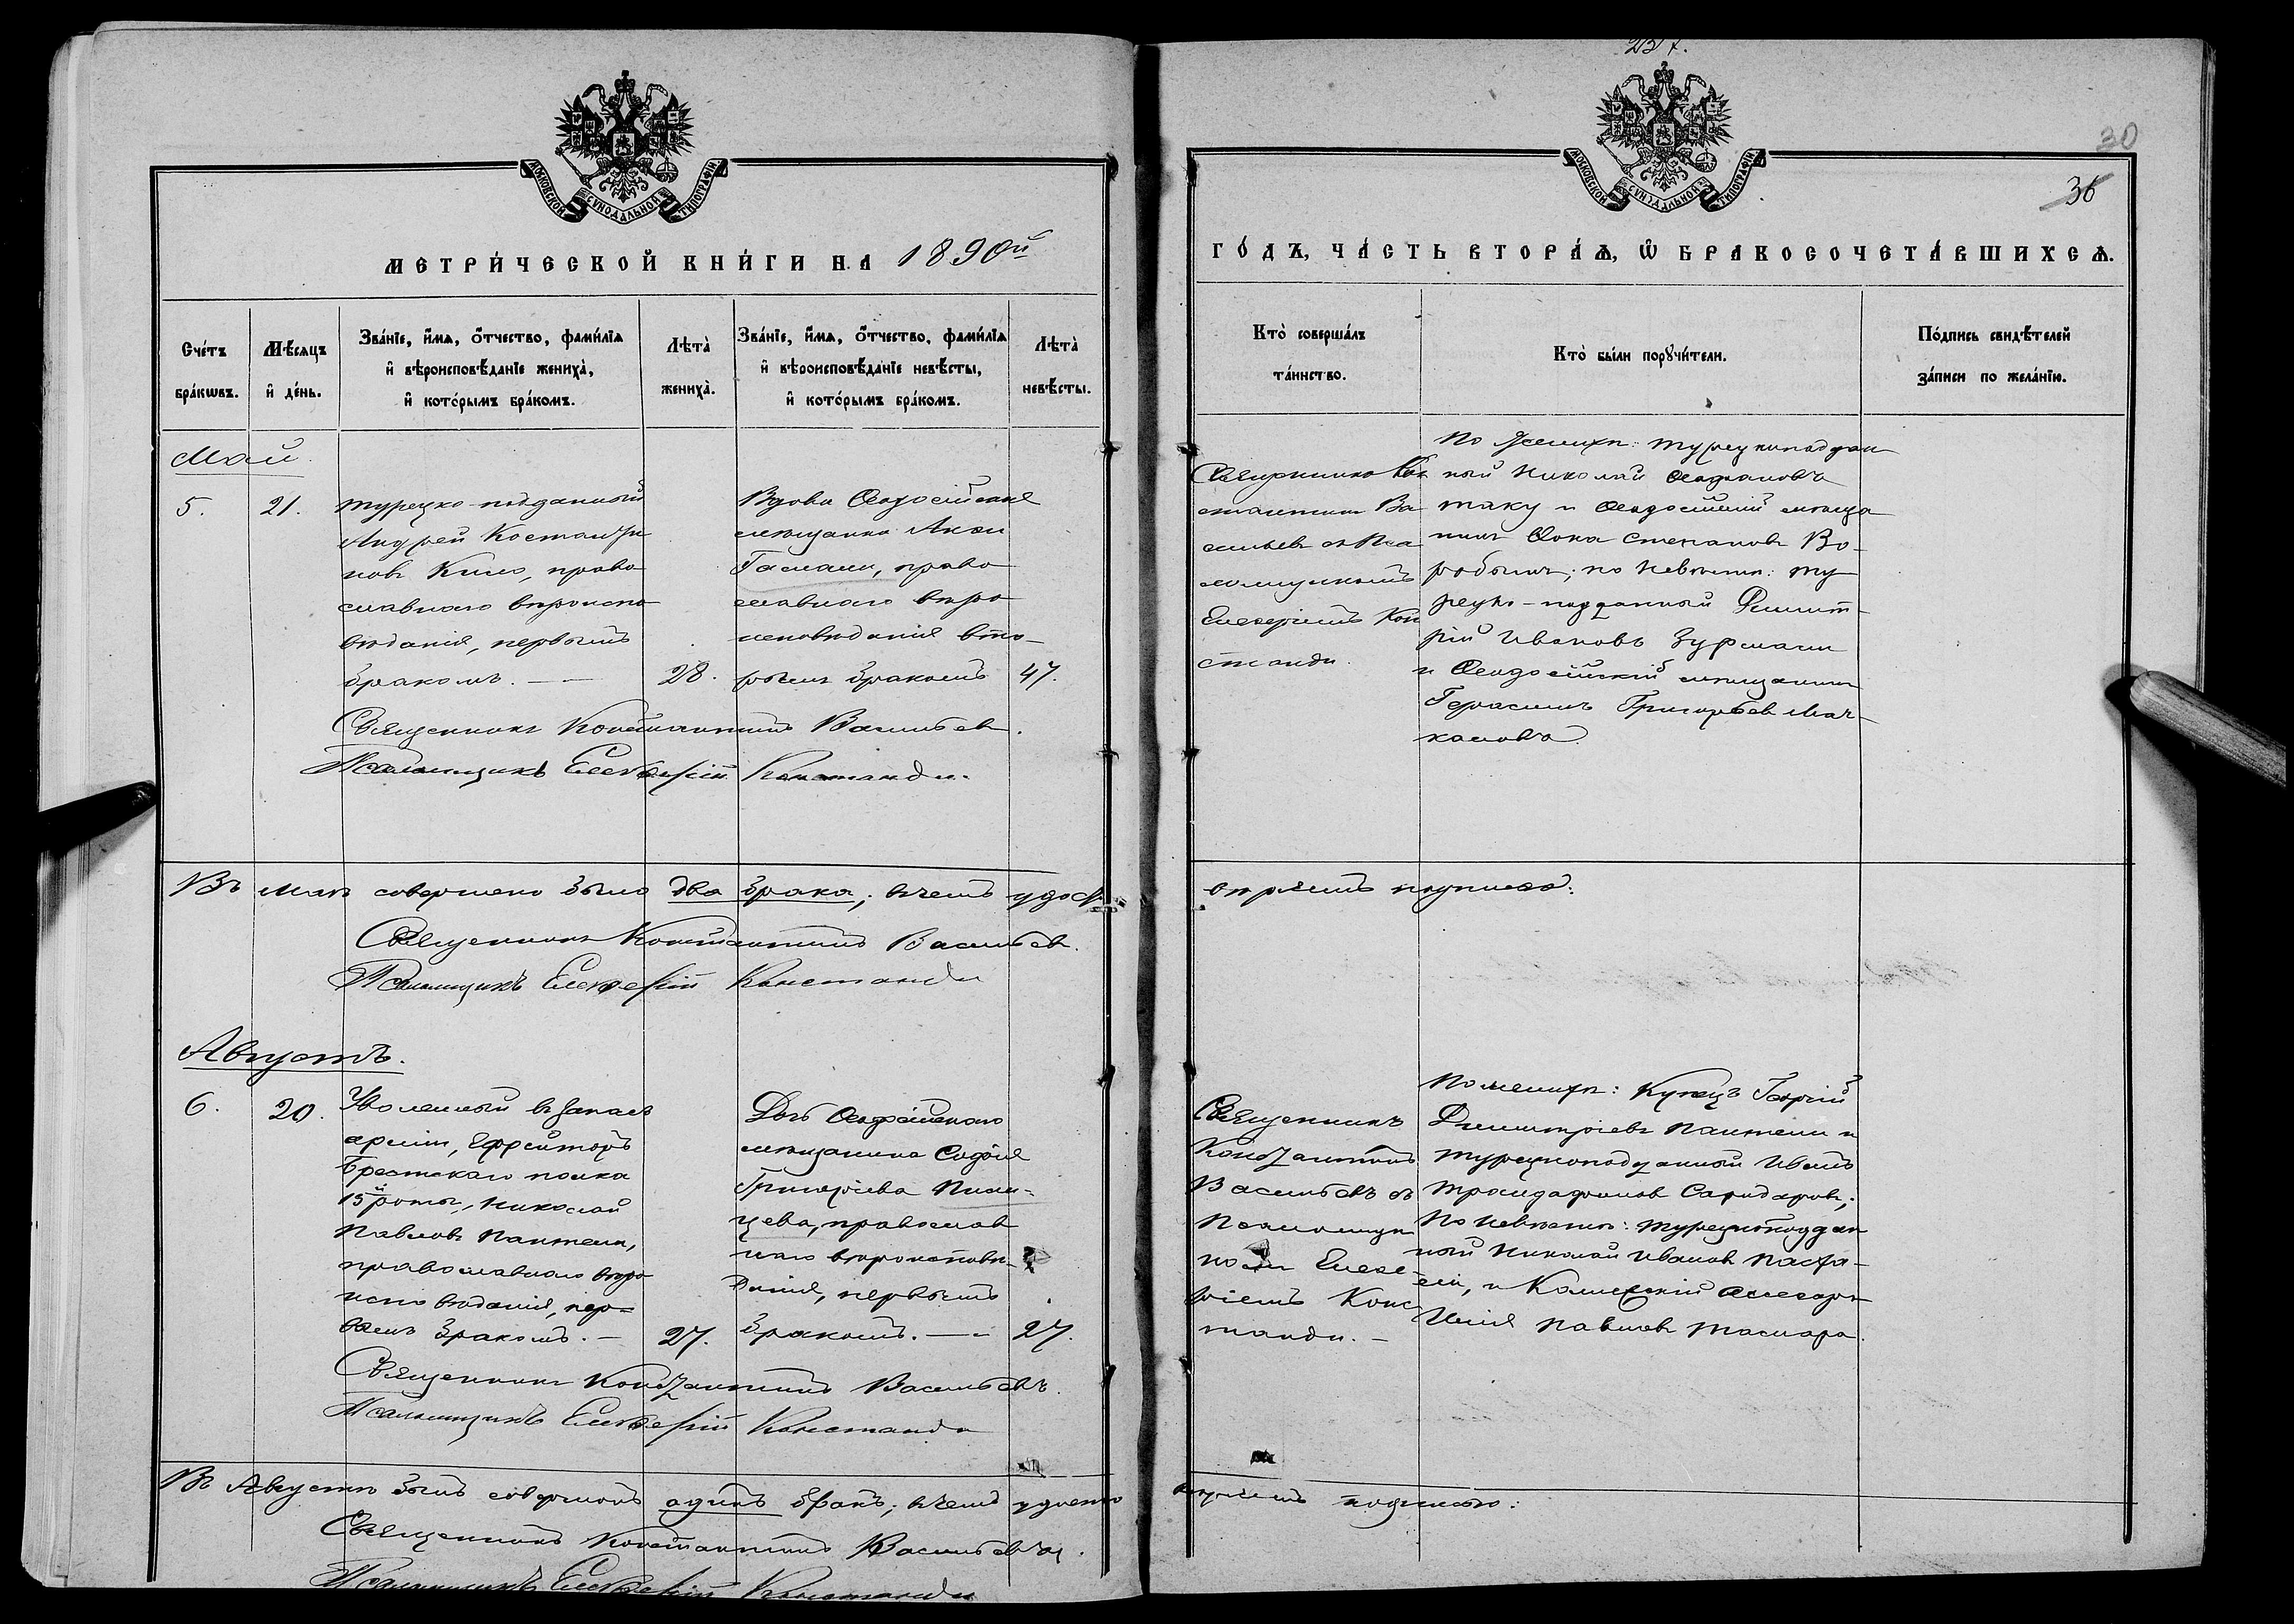 МОСКОВСКОЙ СѴНОДАЛЬНОЙ ТИПОГРАФІИ
МЕТРИ́ЧЕСКОЙ КНИ́ГИ НА 1890й
Сче́тъ бра́кѡвъ.
Мѣ́сяцъ и де́нь.
Зва́нїе, и́мѧ, о́тчество, фами́лїѧ
и вѣроисповѣ́данїе жениха̀,
и кото́рымъ бра́комъ.
Лѣта̀ жениха̀.
Зва́нїе, и́мѧ, о́тчество, фами́лїѧ
и вѣроисповѣ́данїе невѣ́сты,
и кото́рымъ бра́комъ.
Лѣта̀ невѣ́сты.
Май
5. 21.
турецко-подданный
Андрей Костанди
новъ, право
славнаго вѣроиспо
вѣданія, первымъ
бракомъ. — — 28.
Вдова Ѳеодосійская
мѣщанка
право
славнаго вѣро
исповѣданія вто-
рымъ бракомъ 47.
Священникъ Константинъ Васильевъ.
Псаломщикъ Елевѳерій Констанди.
Въ маѣ совершено было два брака; въ чемъ удосто
Священникъ Константинъ Васильевъ.
Псаломщикъ Елевѳерій Констанди
Августъ.
6. 20.
Уволенный въ запасъ
арміи, Ефрейторъ
Брестскаго полка
15й роты, Николай
Павловъ Пантели,
православнаго вѣро
исповѣданія, пер=
вымъ бракомъ. — 27.
Дочь Ѳеодосійскаго
мѣщанина Софія
Григорьева
православ
наго вѣроисповѣ-
данія, первымъ
бракомъ. — 27.
Священникъ Константинъ Васильевъ.
Псаломщикъ Елевѳерій Констанди
Въ Августѣ былъ совершонъ одинъ бракъ; въ чемъ удосто
Священникъ Константинъ Васильевъ.
Псаломщикъ Елевѳерій Констанди
30
36
МОСКОВСКОЙ СѴНОДАЛЬНОЙ ТИПОГРАФІИ
ГО́ДЪ, ЧА́СТЬ ВТОРА́Ѧ, Ѡ БРАКОСОЧЕТА́ВШИХСѦ.
Кто̀ соверша́лъ
та́инство.
Кто̀ бы́ли порꙋчи́тели.
По́дпись свидѣ́телей
за́писи по жела́нїю.
Священникъ Кон
стантинъ Ва
сильевъ съ Пса
ломщикомъ
Елевѳеріемъ Кон
станди.
По женихѣ: турецкоподдан
ный Николай
и Ѳеодосійскій мѣща
нинъ Ѳома Степановъ Во-
робьевъ; по невѣстѣ: ту
рецко-подданный Димит-
рій Ивановъ Зурмали
и Ѳеодосійскій мѣщанинъ
Герасимъ Григорьевъ
вѣряемъ подписью:
Священникъ
Константинъ
Васильевъ съ
Псаломщи
комъ Елевѳе
ріемъ Конс
танди. —
По женихѣ: Купецъ Георгій
Димитріевъ Пантели и
турецкоподданный Иванъ
Трандафиловъ Саридаровъ;
По невѣстѣ: турецкоподдан
ный Николай Ивановъ
и Коллежскій Ассесоръ
Илія Павловъ
вѣряемъ подписью: